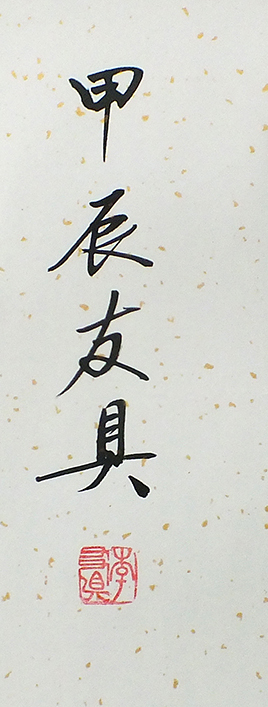 甲辰友具